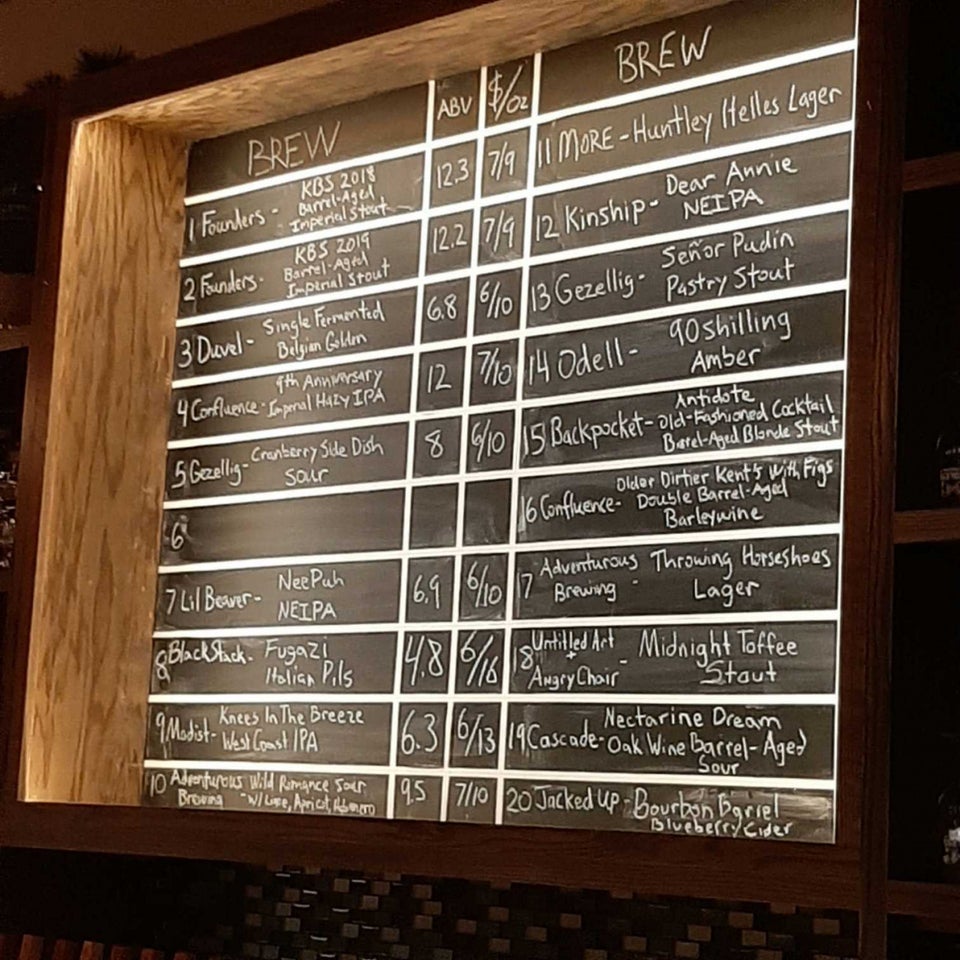 BREW ABV $/oz
1 Founders - KBS 2018
Barrel-Aged
Imperial Stout 12.3 7/9
2 Founders - KBS 2019
Barrel-Aged
Imperial Stout 12.2 7/9
3 Duvel - Single Fermented
Belgian Golden 6.8 6/10
4 Confluence - 9th Anniversary
Imperial Hazy IPA 12 7/10
5 Gezellig - Cranberry Side Dish
Sour 8 6/10
6
7 Lil Beaver - NeePuh
NEIPA 6.9 6/10
8 BlackStack - Fugazi
Italian Pils 4.8 6/16
9 Modist - Knees In The Breeze
West Coast IPA 6.3 6/13
10 Adventurous Wild Romance Sour
Brewing - w/ Lime, Apricot, 9.5 7/10
BREW
11 MORE - Huntley Helles Lager
12 Kinship - Dear Annie
NEIPA
13 Gezellig - Señor Pudin
Pastry Stout
14 Odell - 90shilling
Amber
15 Backpocket - Antidote
Old-Fashioned Cocktail
Barrel-Aged Blonde Stout
16 Confluence - Older Dirtier Kent's With Figs
Double Barrel-Aged
Barleywine
17 Adventurous Throwing Horseshoes
Brewing - Lager
18 Untitled Art
+ - Midnight Toffee
Angry Chair Stout
19 Cascade - Nectarine Dream
Oak Wine Barrel-Aged
Sour
20 Jacked Up - Bourbon Barrel
Blueberry Cider